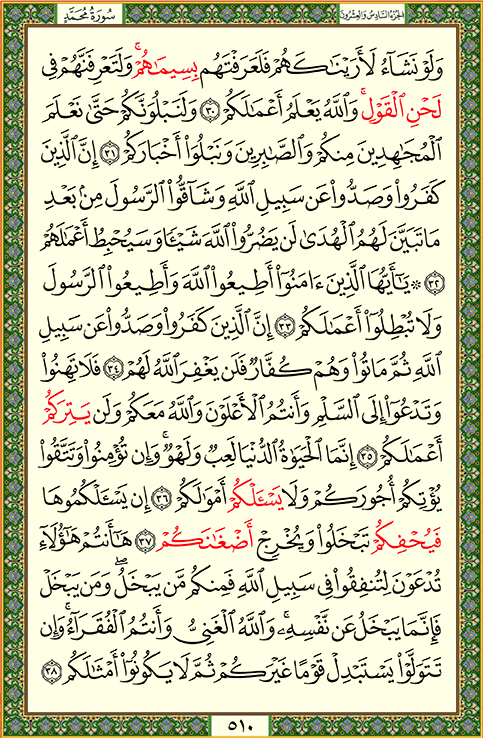 سُورَةُ مُحَمَّدٍ الجُزْءُ السَّادِسُ وَالعِشْرُونَ
وَلَوْ نَشَآءُ لَأَرَيْنَٰكَهُمْ فَلَعَرَفْتَهُم بِسِيمَٰهُمْ ۚ وَلَتَعْرِفَنَّهُمْ فِى
لَحْنِ ٱلْقَوْلِ ۚ وَٱللَّهُ يَعْلَمُ أَعْمَٰلَكُمْ ۝٣٠ وَلَنَبْلُوَنَّكُمْ حَتَّىٰ نَعْلَمَ
ٱلْمُجَٰهِدِينَ مِنكُمْ وَٱلصَّٰبِرِينَ وَنَبْلُوَا۟ أَخْبَارَكُمْ ۝٣١ إِنَّ ٱلَّذِينَ
كَفَرُوا۟ وَصَدُّوا۟ عَن سَبِيلِ ٱللَّهِ وَشَآقُّوا۟ ٱلرَّسُولَ مِنۢ بَعْدِ
مَا تَبَيَّنَ لَهُمُ ٱلْهُدَىٰ لَن يَضُرُّوا۟ ٱللَّهَ شَيْـًٔا وَسَيُحْبِطُ أَعْمَٰلَهُمْ
۝٣٢ ۞ يَٰٓأَيُّهَا ٱلَّذِينَ ءَامَنُوٓا۟ أَطِيعُوا۟ ٱللَّهَ وَأَطِيعُوا۟ ٱلرَّسُولَ
وَلَا تُبْطِلُوٓا۟ أَعْمَٰلَكُمْ ۝٣٣ إِنَّ ٱلَّذِينَ كَفَرُوا۟ وَصَدُّوا۟ عَن سَبِيلِ
ٱللَّهِ ثُمَّ مَاتُوا۟ وَهُمْ كُفَّارٌ فَلَن يَغْفِرَ ٱللَّهُ لَهُمْ ۝٣٤ فَلَا تَهِنُوا۟
وَتَدْعُوٓا۟ إِلَى ٱلسَّلْمِ وَأَنتُمُ ٱلْأَعْلَوْنَ وَٱللَّهُ مَعَكُمْ وَلَن يَتِرَكُمْ
أَعْمَٰلَكُمْ ۝٣٥ إِنَّمَا ٱلْحَيَوٰةُ ٱلدُّنْيَا لَعِبٌ وَلَهْوٌ ۚ وَإِن تُؤْمِنُوا۟ وَتَتَّقُوا۟
يُؤْتِكُمْ أُجُورَكُمْ وَلَا يَسْـَٔلْكُمْ أَمْوَٰلَكُمْ ۝٣٦ إِن يَسْـَٔلْكُمُوهَا
فَيُحْفِكُمْ تَبْخَلُوا۟ وَيُخْرِجْ أَضْغَٰنَكُمْ ۝٣٧ هَٰٓأَنتُمْ هَٰٓؤُلَآءِ
تُدْعَوْنَ لِتُنفِقُوا۟ فِى سَبِيلِ ٱللَّهِ فَمِنكُم مَّن يَبْخَلُ ۖ وَمَن يَبْخَلْ
فَإِنَّمَا يَبْخَلُ عَن نَّفْسِهِۦ ۚ وَٱللَّهُ ٱلْغَنِىُّ وَأَنتُمُ ٱلْفُقَرَآءُ ۚ وَإِن
تَتَوَلَّوْا۟ يَسْتَبْدِلْ قَوْمًا غَيْرَكُمْ ثُمَّ لَا يَكُونُوٓا۟ أَمْثَٰلَكُم ۝٣٨
٥١٠